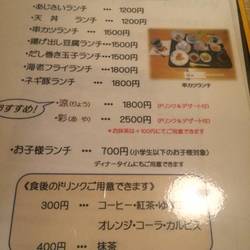 ・あじさいランチ ••• 1200円
・天丼 ランチ ••• 1200円
・串カツランチ •••1500円
・揚げ出し豆腐ランチ•••1500円
・だし巻き玉子ランチ•••1500円
・海老フライランチ •••1800円
・ネギ豚ランチ ••• 1800円
串カツランチ
おすすめ!
・涼(りょう) ••• 1800円(ドリンク&デザート付)
・彩(あや) ••• 2500円(ドリンク&デザート付)
*お抹茶は+100円にてご用意できます
・お子様ランチ ••• 700円(小学生以下のお子様対象)
ディナータイムにもご用意できます
《食後のドリンクご用意できます》
300円 ••• コーヒー・紅茶・ゆ
オレンジ・コーラ・カルピス
400円 ••• 抹茶